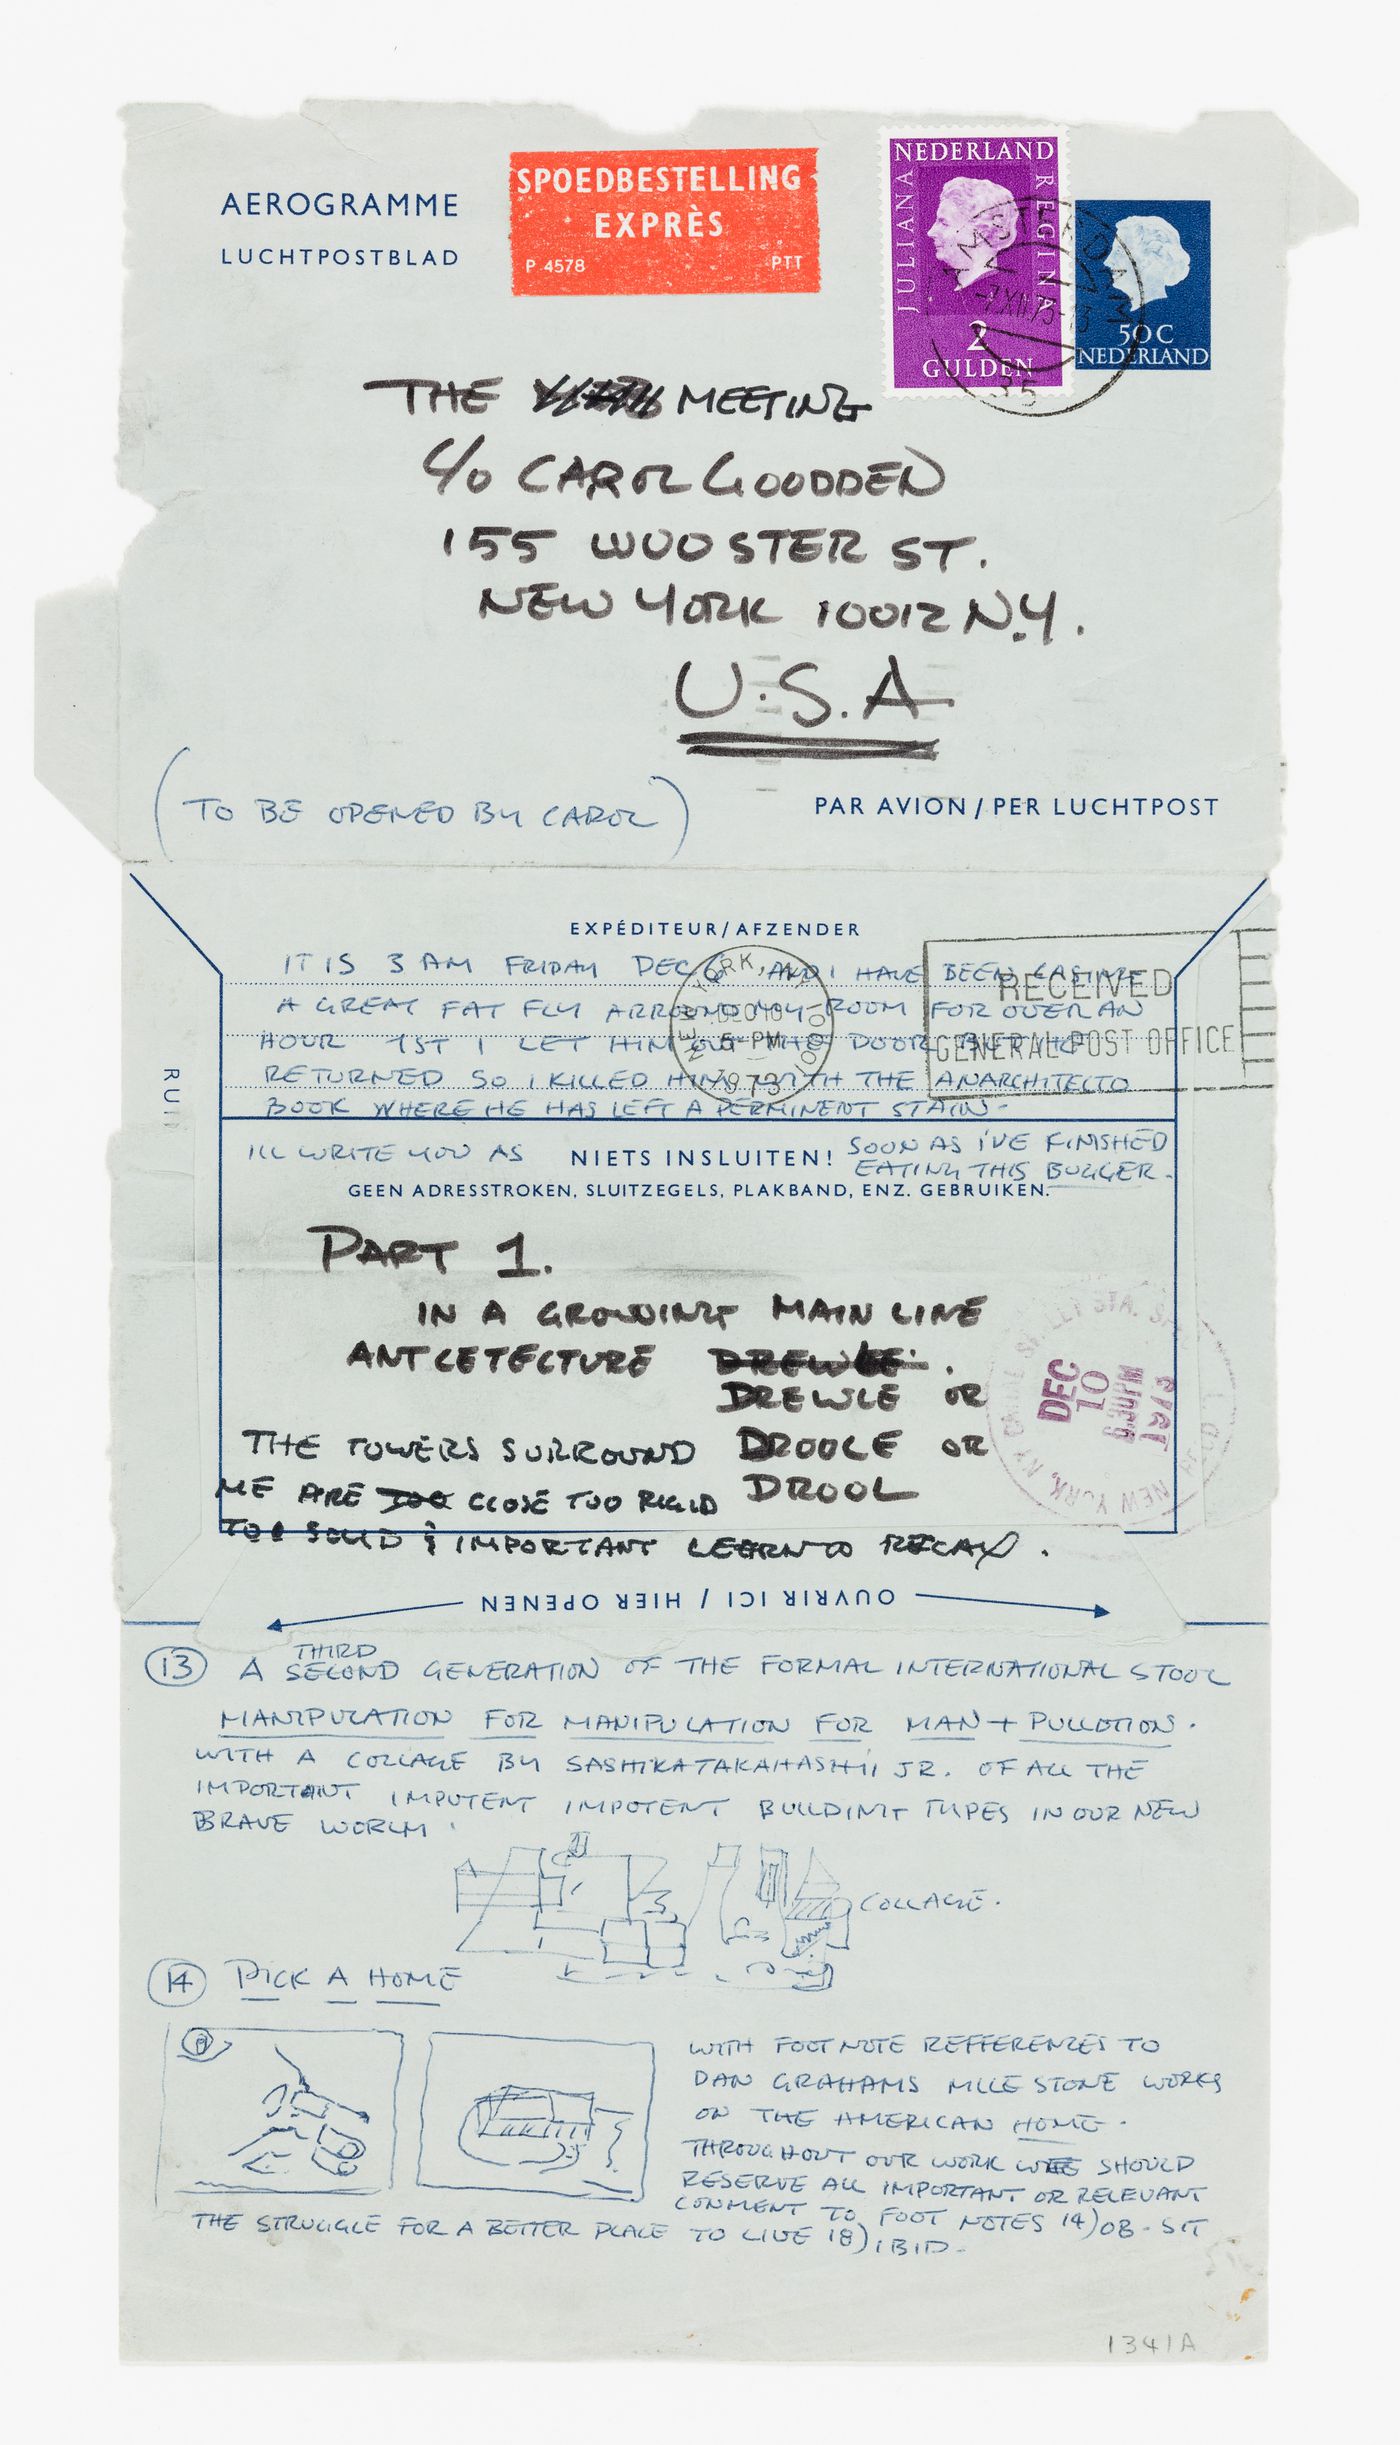 AEROGRAMME
LUCHTPOSTBLAD
SPOEDBESTELLING
EXPRÈS
P 4578 PTT
NEDERLAND
JULIANA REGINA
2
GULDEN
50 C
NEDERLAND
AMSTERDAM
-7 XII 73-13
35
THE MEETING
C/O CAROL GOODDEN
155 WOOSTER ST.
NEW YORK 10012 N.Y.
U.S.A
(TO BE OPENED BY CAROL)
PAR AVION / PER LUCHTPOST
EXPÉDITEUR/AFZENDER
IT IS 3 AM FRIDAY DEC 6 AND I HAVE BEEN
A GREAT FAT FLY ARROUND MY ROOM FOR OVER AN
HOUR 1ST I LET HIM OUT THE DOOR BUT HE
RETURNED SO I KILLED HIM WITH THE ANARCHITECTO
BOOK WHERE HE HAS LEFT A PERMINENT STAIN-
NEW YORK, N.Y.
DEC 10
5 PM
1973
RECEIVED
GENERAL POST OFFICE
I'LL WRITE YOU AS NIETS INSLUITEN! SOON AS I'VE FINISHED
EATING THIS BUGGER.
GEEN ADRESSTROKEN, SLUITZEGELS, PLAKBAND, ENZ. GEBRUIKEN.
PART 1.
IN A GROWING MAIN LINE
ANTCETECTURE DREWLE.
DREWLE OR
THE TOWERS SURROUND DROOLE OR
ME ARE TOO CLOSE TOO RIGID DROOL
TOO SOLID & IMPORTANT LEARN TO RELAX.
DEC
10
630PM
1973
NEW YORK, N.Y.
OUVRIR ICI / HIER OPENEN
THIRD
13 A SECOND GENERATION OF THE FORMAL INTERNATIONAL STOOL
MANIPULATION FOR MANIPULATION FOR MAN + PULLOTION.
WITH A COLLAGE BY SASHIKATAKAHASHII JR. OF ALL THE
IMPORTANT IMPUTENT IMPOTENT BUILDING TYPES IN OUR NEW
BRAVE WORLM.
COLLAGE.
14 PICK A HOME
WITH FOOTNOTE REFFERENZES TO
DAN GRAHAMS MILE STONE WORKS
ON THE AMERICAN HOME.
THROUGHOUT OUR WORK WE SHOULD
RESERVE ALL IMPORTANT OR RELEVANT
COMMENT TO FOOT NOTES 14) OB. SIT
THE STRUGGLE FOR A BETTER PLACE TO LIVE 18) IBID.
1341A